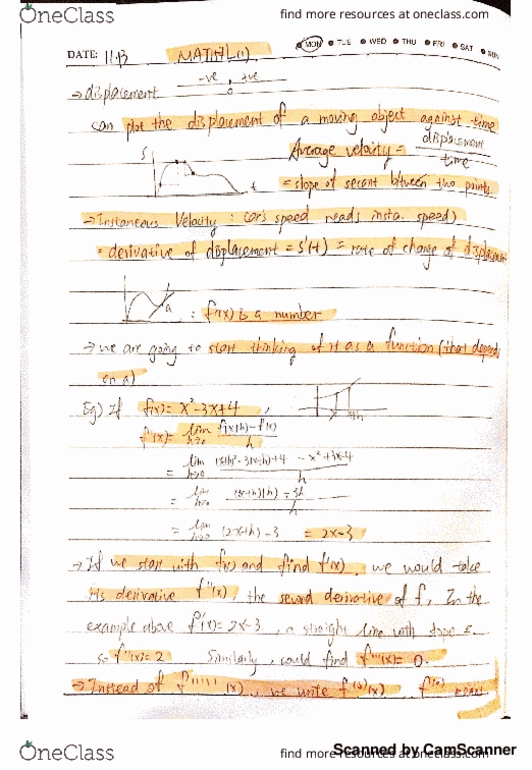 OneClass
find more resources at oneclass.com
DATE: 11.13 MATH1L(1) MON TUE WED THU FRI SAT SUN
-ve 0 +ve
→ displacement
can plot the displacement of a moving object against time
S t
Average velocity = displacement / time
= slope of secant btween the two points
→ Instaneous Velocity : car's speed reads insta. speed)
= derivative of displacement = S'(t) = rate of change of displacement
a : f'(x) is a number
→ we are going to start thinking of it as a function (that depends
on a)
Eg) If f(x) = x²-3x+4 ,
f'(x) = lim h→0 f(x+h)-f(x) / h
= lim h→0 (x+h)²-3(x+h)+4 - x²+3x-4 / h
= lim h→0
= lim h→0 (2x+h)-3 = 2x-3
→ If we start with f(x) and find f'(x), we would take
its derivative f''(x), the second derivative of f. In the
example above f'(x) = 2x-3, a straight line with slope
so f''(x) = 2 Similarly, could find f'''(x) = 0.
→ Instead of f'''''(x), we write f⁽⁵⁾(x)
OneClass
find more resources at oneclass.com
Scanned by CamScanner